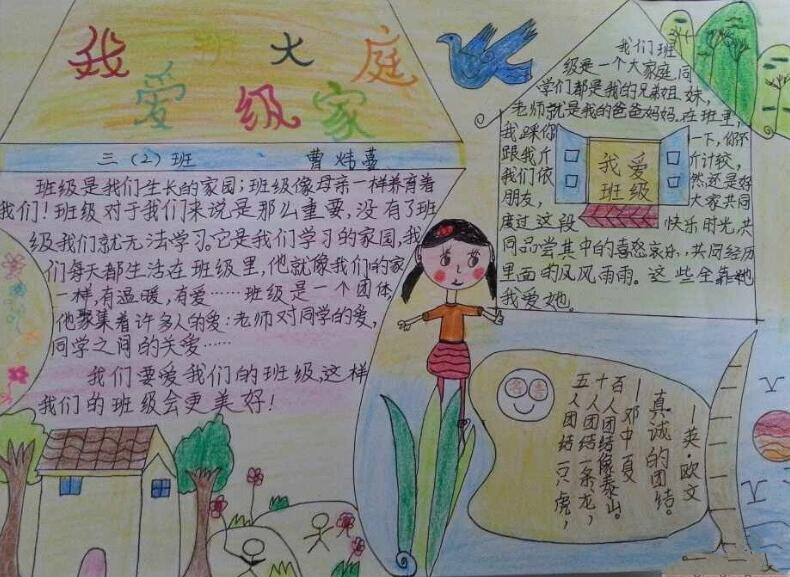 我爱班级大家庭
三(2)班 曹炜嘉
班级是我们生长的家园;班级像母亲一样养育着
我们!班级对于我们来说是那么重要,没有了班
级我们就无法学习。它是我们学习的家园,我
们每天都生活在班级里,他就像我们的家
一样,有温暖,有爱……班级是一个团体,
他聚集着许多人的爱:老师对同学的爱,
同学之间的关爱……
我们要爱我们的班级,这样
我们的班级会更美好!
我们班
级是一个大家庭,同
学们都是我的兄弟姐妹,
老师就是我的爸爸妈妈。在班里,
我踩你一下,你不
跟我斤斤计较,
我们依然还是好
朋友,大家共同
度过这段快乐时光,共
同品尝其中的喜怒哀乐,共同经历
里面的风风雨雨。这些全靠她
我爱她。
我爱
班级
—英·欧文
真诚的团结。
—邓中夏
百人团结像泰山。
十人团结一条龙,
五人团结一只虎,